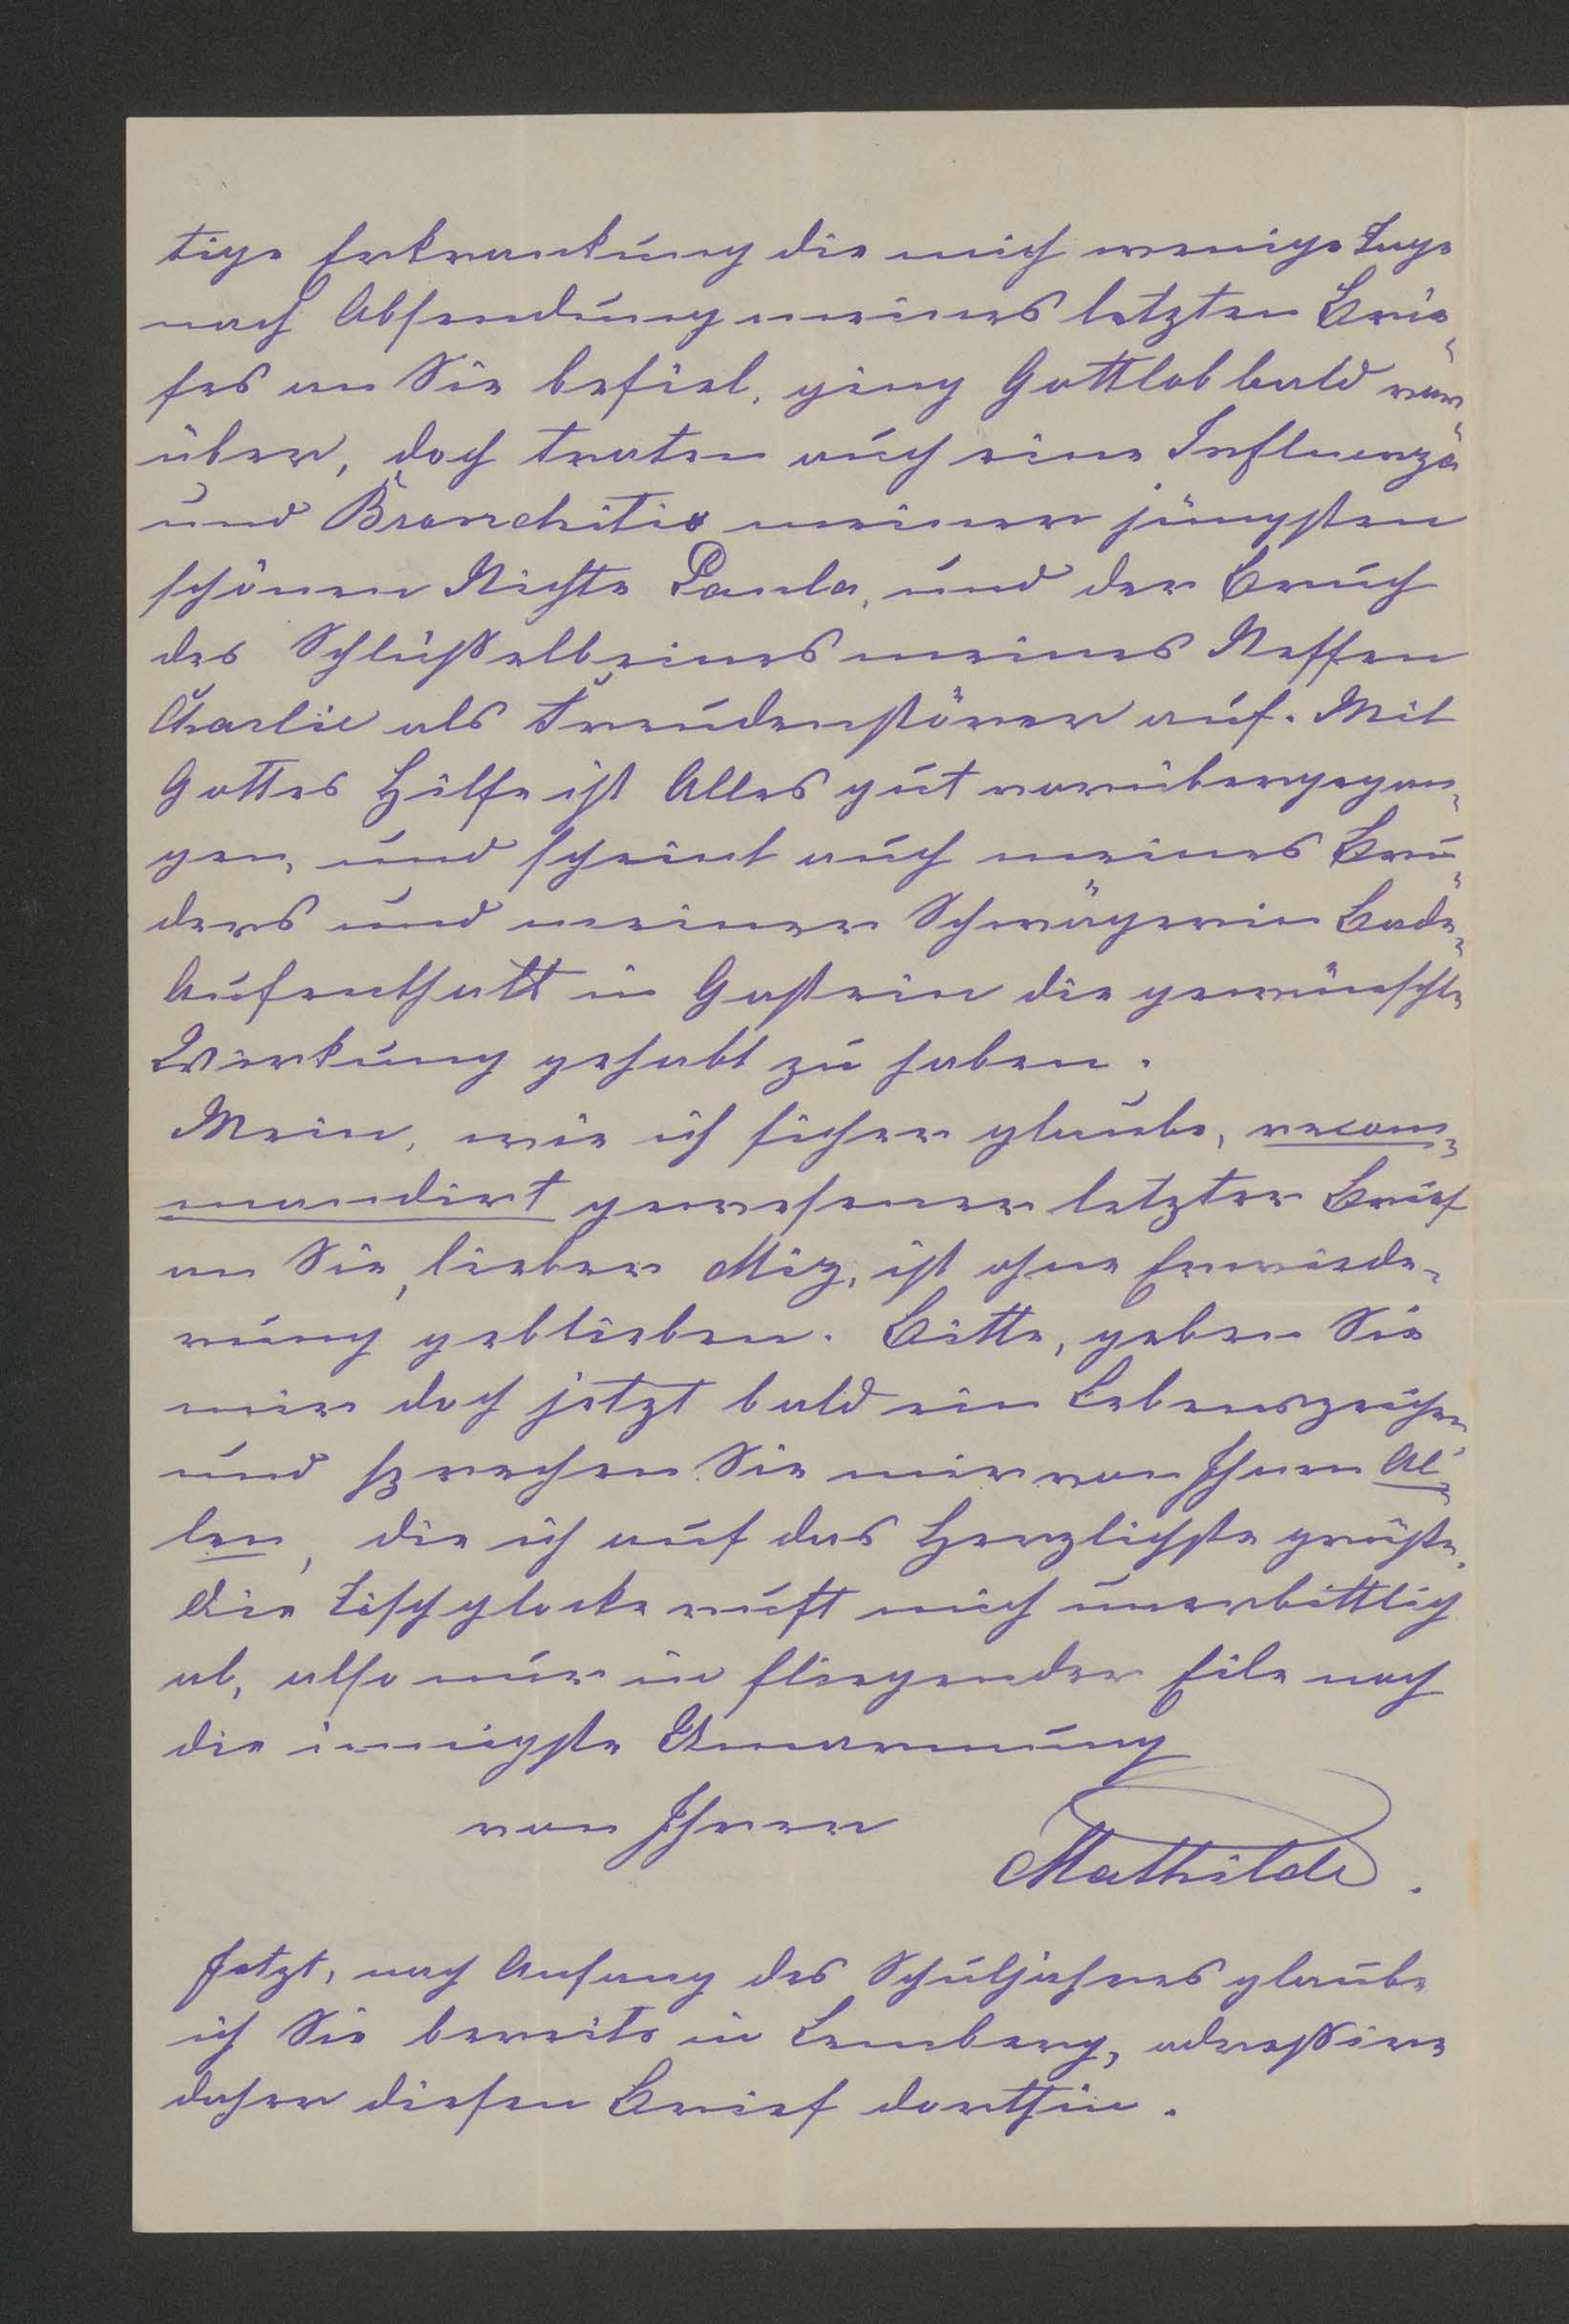 tige Erkrankung die mich wenige Tage
nach Absendung meines letzten Brie-
fes an Sie befiel, ging Gottlob bald vor-
über, doch traten auch eine Influenza
und Bronchitis meiner jüngsten
schönen Nichte Paula, und der Bruch
des Schlüßelbeines meines Neffen
Charlie als Freudenstörer auf. Mit
Gottes Hülfe ist Alles gut vorübergegan-
gen, und scheint auch meines Bru-
ders und meiner Schwägerin Bade-
Aufenthalt in Gastein die gewünschte
Wirkung gehabt zu haben.
Mein, wie ich sicher glaube, recom-
mandirt gewesener letzter Brief
an Sie, lieber Miz, ist ohne Erwiede-
rung geblieben. Bitte, geben Sie
mir doch jetzt bald ein Lebenszeichen
und sprechen Sie mir von Ihnen Al-
len, die ich auf das Herzlichste grüße.
Die Tischglocke ruft mich unerbittlich
ab, also nur in fliegender Eile noch
die innigste Umarmung
von Ihrer
Mathilde.
Jetzt, nach Anfang des Schuljahres glaube
ich Sie bereits in Lemberg, adreßire
daher diesen Brief dorthin.